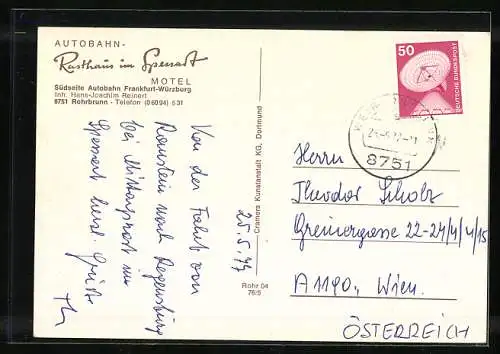 AUTOBAHN-
Rasthaus im Spessart
MOTEL
Südseite Autobahn Frankfurt-Würzburg
Inh. Hans-Joachim Reinert
8751 Rohrbrunn - Telefon (06094) 531
Von der Fahrt von
Ramstein nach Regensburg
bei Mittagsrast im
Spessart herzl. Grüße
25.5.77
Cramers Kunstanstalt KG, Dortmund
Rohr 04
76/5
50
DEUTSCHE BUNDESPOST
8751
Herrn
Theodor Scholz
Greinergasse 22-24/4/4/15
A1190, Wien.
ÖSTERREICH